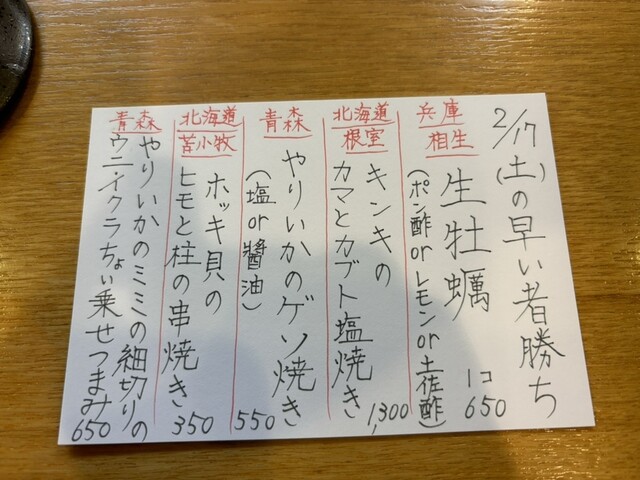 2/17(土)の早い者勝ち
兵庫
相生
生牡蠣
1コ
650
(ポン酢orレモンor土佐酢)
北海道
根室
キンキの
カマとカブト塩焼き
1,300
青森
やりいかのゲソ焼き
(塩or醬油)
550
北海道
苫小牧
ホッキ貝の
ヒモと柱の串焼き
350
青森
やりいかのミミの細切りの
ウニイクラちょい乗せつまみ
650